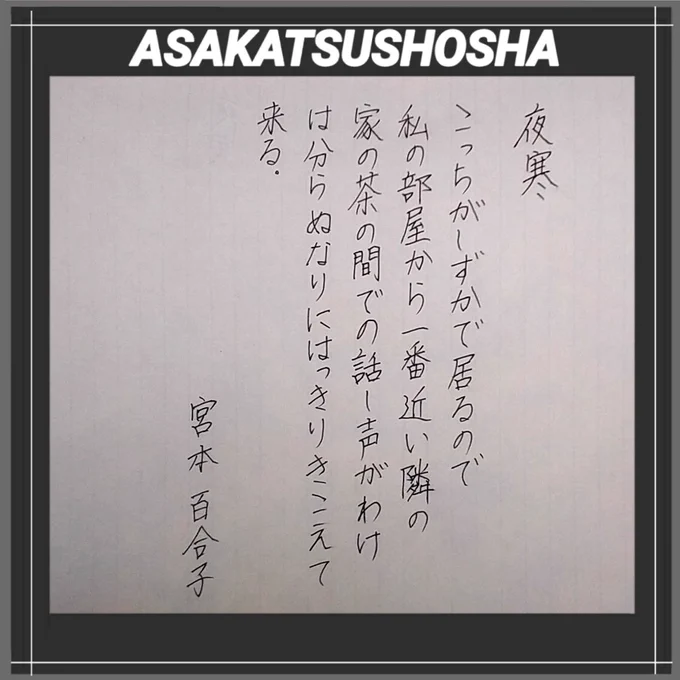 ASAKATSUSHOSHA
夜寒
こっちがしずかで居るので
私の部屋から一番近い隣の
家の茶の間での話し声がわけ
は分らぬなりにはっきりきこえて
来る.
宮本 百合子